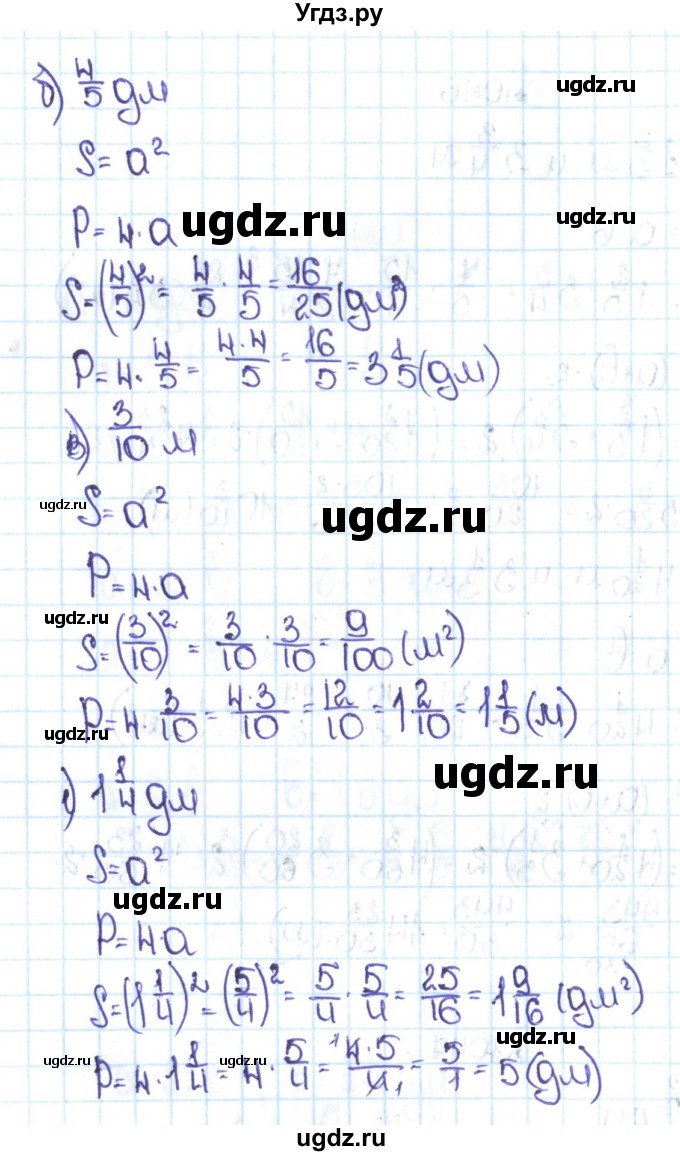 Угдз.ру
б) 4/5 дм
ugdz.ru
S = a²
P = 4·a
ugdz.ru
ugdz.ru
S = (4/5)² = 4/5 · 4/5 = 16/25 (дм²)
P = 4 · 4/5 = 4·4/5 = 16/5 = 3 1/5 (дм)
в) 3/10 м
ugdz.ru
S = a²
ugdz.ru
P = 4·a
ugdz.ru
S = (3/10)² = 3/10 · 3/10 = 9/100 (м²)
P = 4 · 3/10 = 4·3/10 = 12/10 = 1 2/10 = 1 1/5 (м)
г) 1 1/4 дм
ugdz.ru
S = a²
ugdz.ru
P = 4a
S = (1 1/4)² = (5/4)² = 5/4 · 5/4 = 25/16 = 1 9/16 (дм²)
ugdz.ru
ugdz.ru
ugdz.ru
P = 4 · 1 1/4 = 4 · 5/4 = ¹4·5/4₁ = 5/1 = 5 (дм)
ugdz.ru